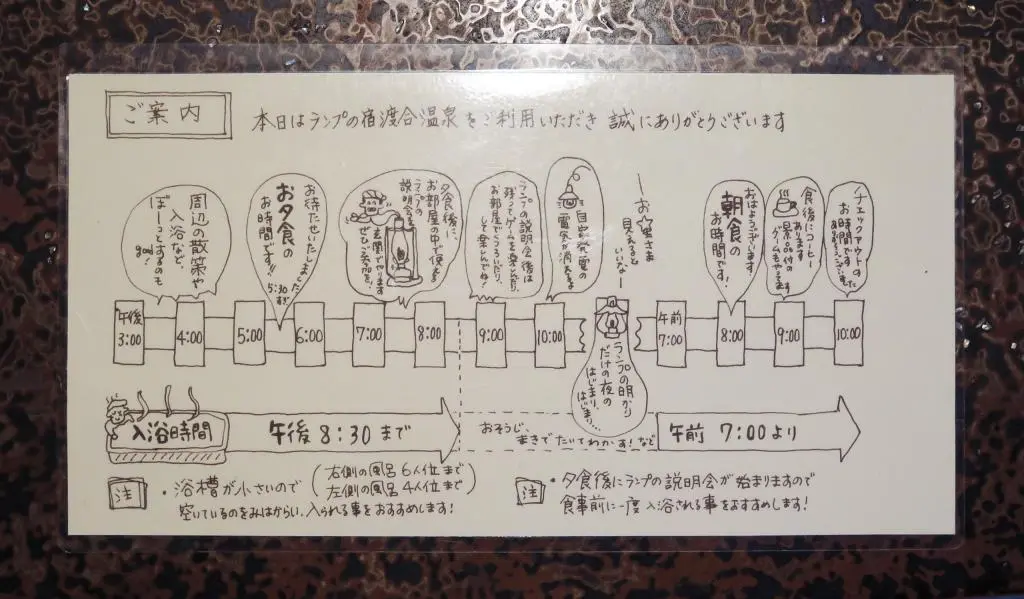 ご案内
本日はランプの宿渡合温泉をご利用いただき 誠にありがとうございます
周辺の散策や
入浴など、
ぼーっとするのも
good!
お待たせいたしました
お夕食の
お時間です!!
5:30すぎ
夕食後に、
お部屋の中で使える
ランプの
説明会を
玄関でやります
ぜひご参加を!
ランプの説明会後は
残ってゲームを楽しんだり、
お部屋でくつろいだり、
して楽しんでね!
自家発電の
電気が消えるよ
お星さま
見えると
いいなー
おはようございます!
朝食の
お時間です!
食後にコーヒー
あります
景品付の
ゲームもやってます
チェックアウトの
お時間です
ありがとうございました
午後
3:00
4:00
5:00
6:00
7:00
8:00
9:00
10:00
午前
7:00
8:00
9:00
10:00
ランプの明かり
だけの夜の
はじまり、
はじまり…
入浴時間
午後 8:30 まで
おそうじ、
まきでだいてわかす!など
午前 7:00 より
注
・浴槽が小さいので
(右側の風呂 6人位まで
左側の風呂 4人位まで)
空いているのをみはからい、入られる事をおすすめします!
注
・夕食後にランプの説明会が始まりますので
食事前に一度入浴される事をおすすめします!